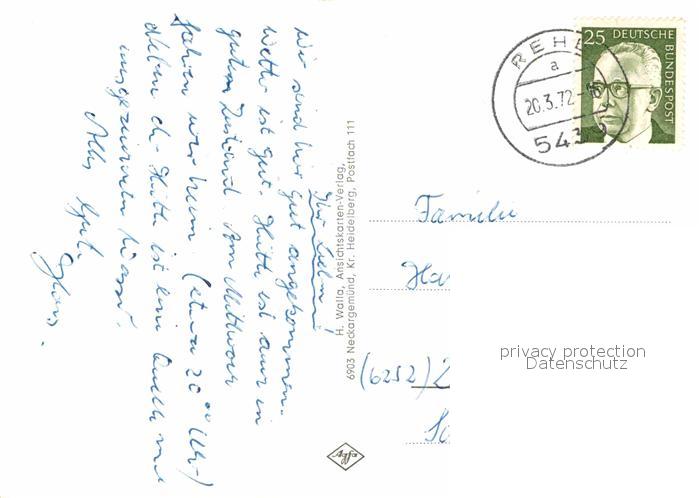 Ihr Lieben!
Wir sind hier gut angekommen.
Wetter ist gut. Hütte ist auch in
gutem Zustand. Am Mittwoch
fahren wir heim. (etwa 20⁰⁰ Uhr)
Neben der Hütte ist eine Quelle und
Alles Gute
H. Walla, Ansichtskarten-Verlag,
6903 Neckargemünd, Kr. Heidelberg, Postfach 111
Agfa
REHE
a
20.3.72
543
25 DEUTSCHE
BUNDESPOST
Familie
Ha
(6252)
privacy protection
Datenschutz